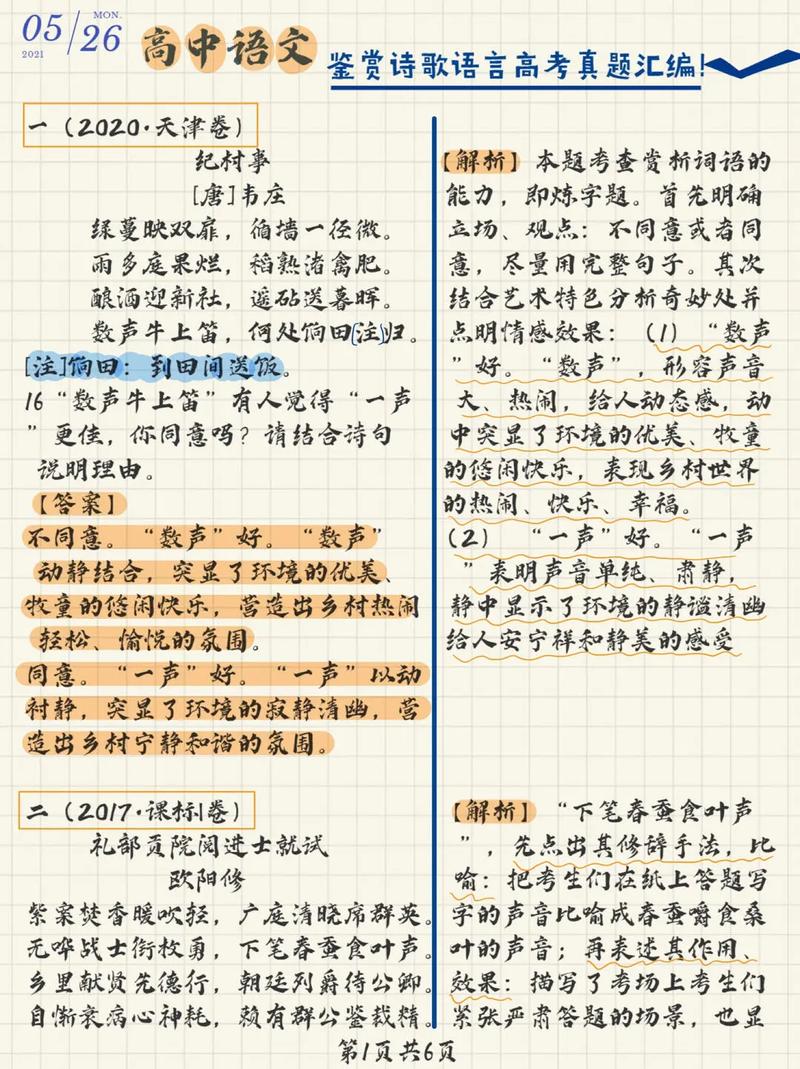 05/26
MON.
2021
高中语文
鉴赏诗歌语言高考真题汇编!
一（2020·天津卷）
纪村事
[唐]韦庄
绿蔓映双扉，循墙一径微。
雨多庭果烂，稻熟渚禽肥。
酿酒迎新社，遥砧送暮晖。
数声牛上笛，何处饷田(注)归。
[注]饷田：到田间送饭。
16“数声牛上笛”有人觉得“一声
”更佳，你同意吗？请结合诗句
说明理由。
【答案】
不同意。“数声”好。“数声”
动静结合，突显了环境的优美、
牧童的悠闲快乐，营造出乡村热闹
轻松、愉悦的氛围。
同意。“一声”好。“一声”以动
衬静，突显了环境的寂静清幽，营
造出乡村宁静和谐的氛围。
【解析】本题考查赏析词语的
能力，即炼字题。首先明确
立场、观点：不同意或者同
意，尽量用完整句子。其次
结合艺术特色分析奇妙处并
点明情感效果：（1）“数声
”好。“数声”，形容声音
大、热闹，给人动态感，动
中突显了环境的优美、牧童
的悠闲快乐，表现乡村世界
的热闹、快乐、幸福。
（2）“一声”好。“一声
”表明声音单纯、肃静，
静中显示了环境的静谧清幽
给人安宁祥和静美的感受
二（2017·课标Ⅰ卷）
礼部贡院阅进士就试
欧阳修
紫案焚香暖吹轻，广庭清晓席群英。
无哗战士衔枚勇，下笔春蚕食叶声。
乡里献贤先德行，朝廷列爵待公卿。
自惭衰病心神耗，赖有群公鉴裁精。
【解析】“下笔春蚕食叶声
”，先点出其修辞手法，比
喻：把考生们在纸上答题写
字的声音比喻成春蚕嚼食桑
叶的声音；再表述其作用、
效果：描写了考场上考生们
紧张严肃答题的场景，也显
第1页共6页